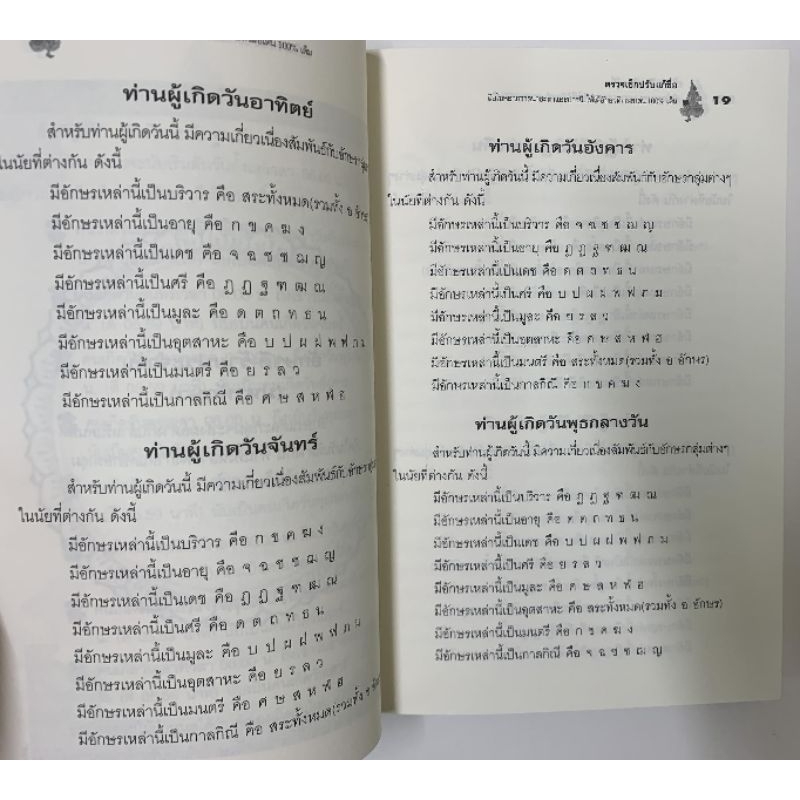 100% เต็ม
ท่านผู้เกิดวันอาทิตย์
สำหรับท่านผู้เกิดวันนี้ มีความเกี่ยวเนื่องสัมพันธ์กับอักษรกลุ่ม
ในนัยที่ต่างกัน ดังนี้
มีอักษรเหล่านี้เป็นบริวาร คือ สระทั้งหมด(รวมทั้ง อ อักษร
มีอักษรเหล่านี้เป็นอายุ คือ ก ข ค ฆ ง
มีอักษรเหล่านี้เป็นเดช คือ จ ฉ ช ซ ฌ ญ
มีอักษรเหล่านี้เป็นศรี คือ ฎ ฏ ฐ ฑ ฒ ณ
มีอักษรเหล่านี้เป็นมูละ คือ ด ต ถ ท ธ น
มีอักษรเหล่านี้เป็นอุตสาหะ คือ บ ป ผ ฝ พ ฟ ภ ม
มีอักษรเหล่านี้เป็นมนตรี คือ ย ร ล ว
มีอักษรเหล่านี้เป็นกาลกิณี คือ ศ ษ ส ห ฬ ฮ
ท่านผู้เกิดวันจันทร์
สำหรับท่านผู้เกิดวันนี้ มีความเกี่ยวเนื่องสัมพันธ์กับอักษร
ในนัยที่ต่างกัน ดังนี้
มีอักษรเหล่านี้เป็นบริวาร คือ ก ข ค ฆ ง
มีอักษรเหล่านี้เป็นอายุ คือ จ ฉ ช ซ ฌ ญ
มีอักษรเหล่านี้เป็นเดช คือ ฎ ฏ ฐ ฑ ฒ ณ
มีอักษรเหล่านี้เป็นศรี คือ ด ต ถ ท ธ น
มีอักษรเหล่านี้เป็นมูละ คือ บ ป ผ ฝ พ ฟ ภ ม
มีอักษรเหล่านี้เป็นอุตสาหะ คือ ย ร ล ว
มีอักษรเหล่านี้เป็นมนตรี คือ ศ ษ ส ห ฬ ฮ
มีอักษรเหล่านี้เป็นกาลกิณี คือ สระทั้งหมด(รวมทั้ง อ
ตรวจเช็กปรับแก้ชื่อ
100% เต็ม
19
ท่านผู้เกิดวันอังคาร
สำหรับท่านผู้เกิดวันนี้ มีความเกี่ยวเนื่องสัมพันธ์กับอักษรกลุ่มต่างๆ
ในนัยที่ต่างกัน ดังนี้
มีอักษรเหล่านี้เป็นบริวาร คือ จ ฉ ช ซ ฌ ญ
มีอักษรเหล่านี้เป็นอายุ คือ ฎ ฏ ฐ ฑ ฒ ณ
มีอักษรเหล่านี้เป็นเดช คือ ด ต ถ ท ธ น
มีอักษรเหล่านี้เป็นศรี คือ บ ป ผ ฝ พ ฟ ภ ม
มีอักษรเหล่านี้เป็นมูละ คือ ย ร ล ว
มีอักษรเหล่านี้เป็นอุตสาหะ คือ ศ ษ ส ห ฬ ฮ
มีอักษรเหล่านี้เป็นมนตรี คือ สระทั้งหมด(รวมทั้ง อ อักษร)
มีอักษรเหล่านี้เป็นกาลกิณี คือ ก ข ค ฆ ง
ท่านผู้เกิดวันพุธกลางวัน
สำหรับท่านผู้เกิดวันนี้ มีความเกี่ยวเนื่องสัมพันธ์กับอักษรกลุ่มต่างๆ
ในนัยที่ต่างกัน ดังนี้
มีอักษรเหล่านี้เป็นบริวาร คือ ฎ ฏ ฐ ฑ ฒ ณ
มีอักษรเหล่านี้เป็นอายุ คือ ด ต ถ ท ธ น
มีอักษรเหล่านี้เป็นเดช คือ บ ป ผ ฝ พ ฟ ภ ม
มีอักษรเหล่านี้เป็นศรี คือ ย ร ล ว
มีอักษรเหล่านี้เป็นมูละ คือ ศ ษ ส ห ฬ ฮ
มีอักษรเหล่านี้เป็นอุตสาหะ คือ สระทั้งหมด(รวมทั้ง อ อักษร)
มีอักษรเหล่านี้เป็นมนตรี คือ ก ข ค ฆ ง
มีอักษรเหล่านี้เป็นกาลกิณี คือ จ ฉ ช ซ ฌ ญ